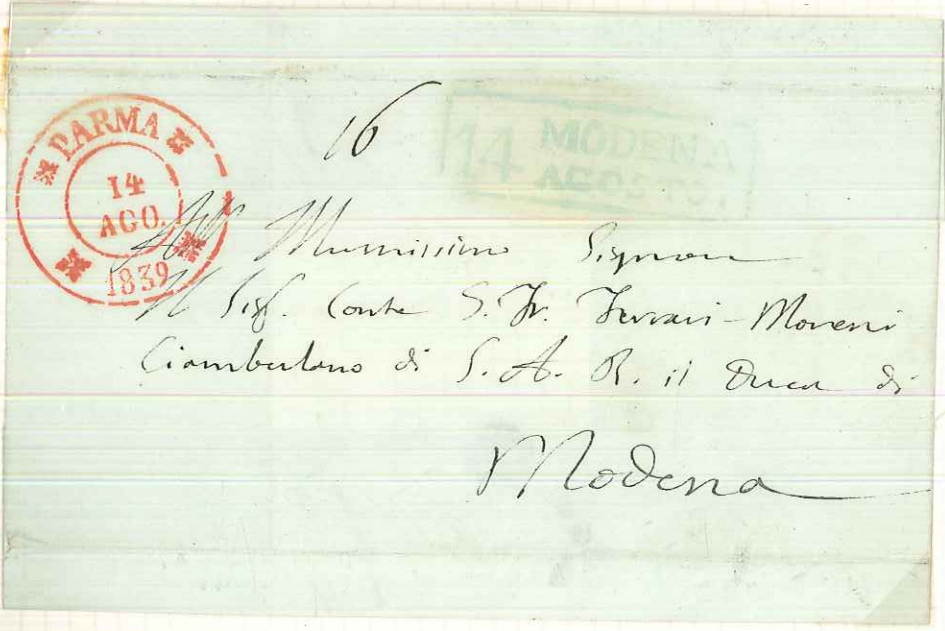 PARMA
14
AGO.
1839
16
14 MODENA
AGOSTO.
All' Illustrissimo Signore
Il Sig. Conte S. Fr. Ferrari-Moreni
Ciambellano di S. A. R. il Duca di
Modena